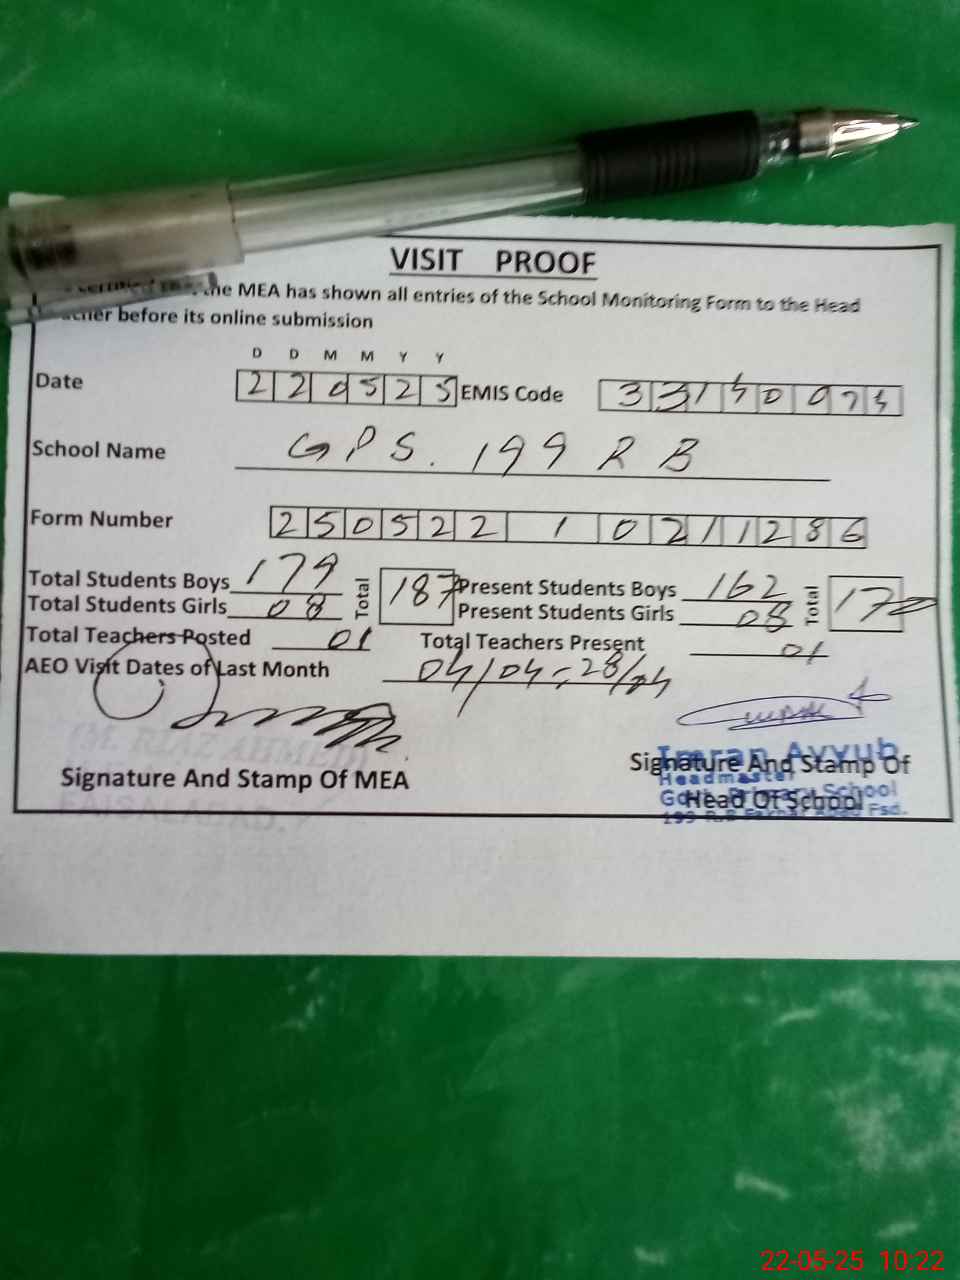 VISIT PROOF
the MEA has shown all entries of the School Monitoring Form to the Head
before its online submission
D D M M Y Y
Date 2 2 0 5 2 5 EMIS Code 3 3 1
School Name GPS. 199 R B
Form Number 2 5 0 5 2 2 1 0 2 1 1 2 8 6
Total Students Boys 179 Total 187 Present Students Boys 162 Total 170
Total Students Girls 08 Present Students Girls 08
Total Teachers Posted 01 Total Teachers Present 01
AEO Visit Dates of Last Month 04/04 - 28/04
(M. RIAZ AHMED)
Signature And Stamp Of MEA
FAISALABAD.
Imran Ayyub
Signature And Stamp Of
Headmaster
Govt. Primary School
Head Of School
199 R.B Fsd.
22-05-25 10:22